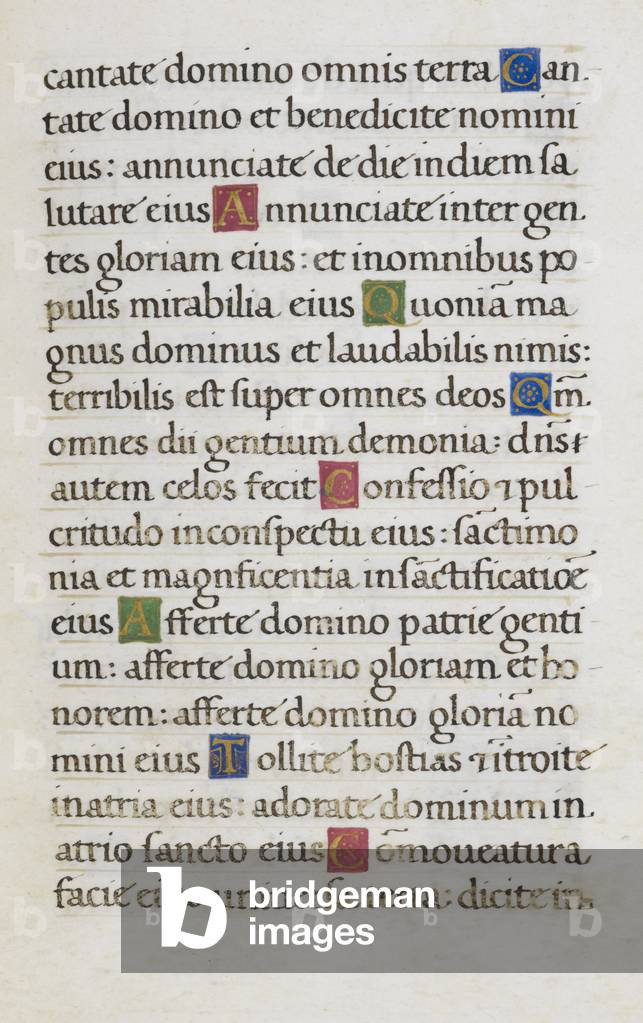 cantate domino omnis terra Can
tate domino et benedicite nomini
eius: annunciate de die in diem sa
lutare eius Annunciate inter gen
tes gloriam eius: et in omnibus po
pulis mirabilia eius Quoniã ma
gnus dominus et laudabilis nimis:
terribilis est super omnes deos Qm̃
omnes dii gentium demonia: dñs
autem celos fecit Confessio ⁊ pul
critudo in conspectu eius: sãctimo
nia et magnficentia in sãctificatiõe
eius Afferte domino patrie genti
um: afferte domino gloriam et ho
norem: afferte domino gloriã no
mini eius Tollite hostias ⁊ ĩtroite
in atria eius: adorate dominum in
atrio sancto eius Cõmoueatur a
facie : dicite in
bridgeman
images